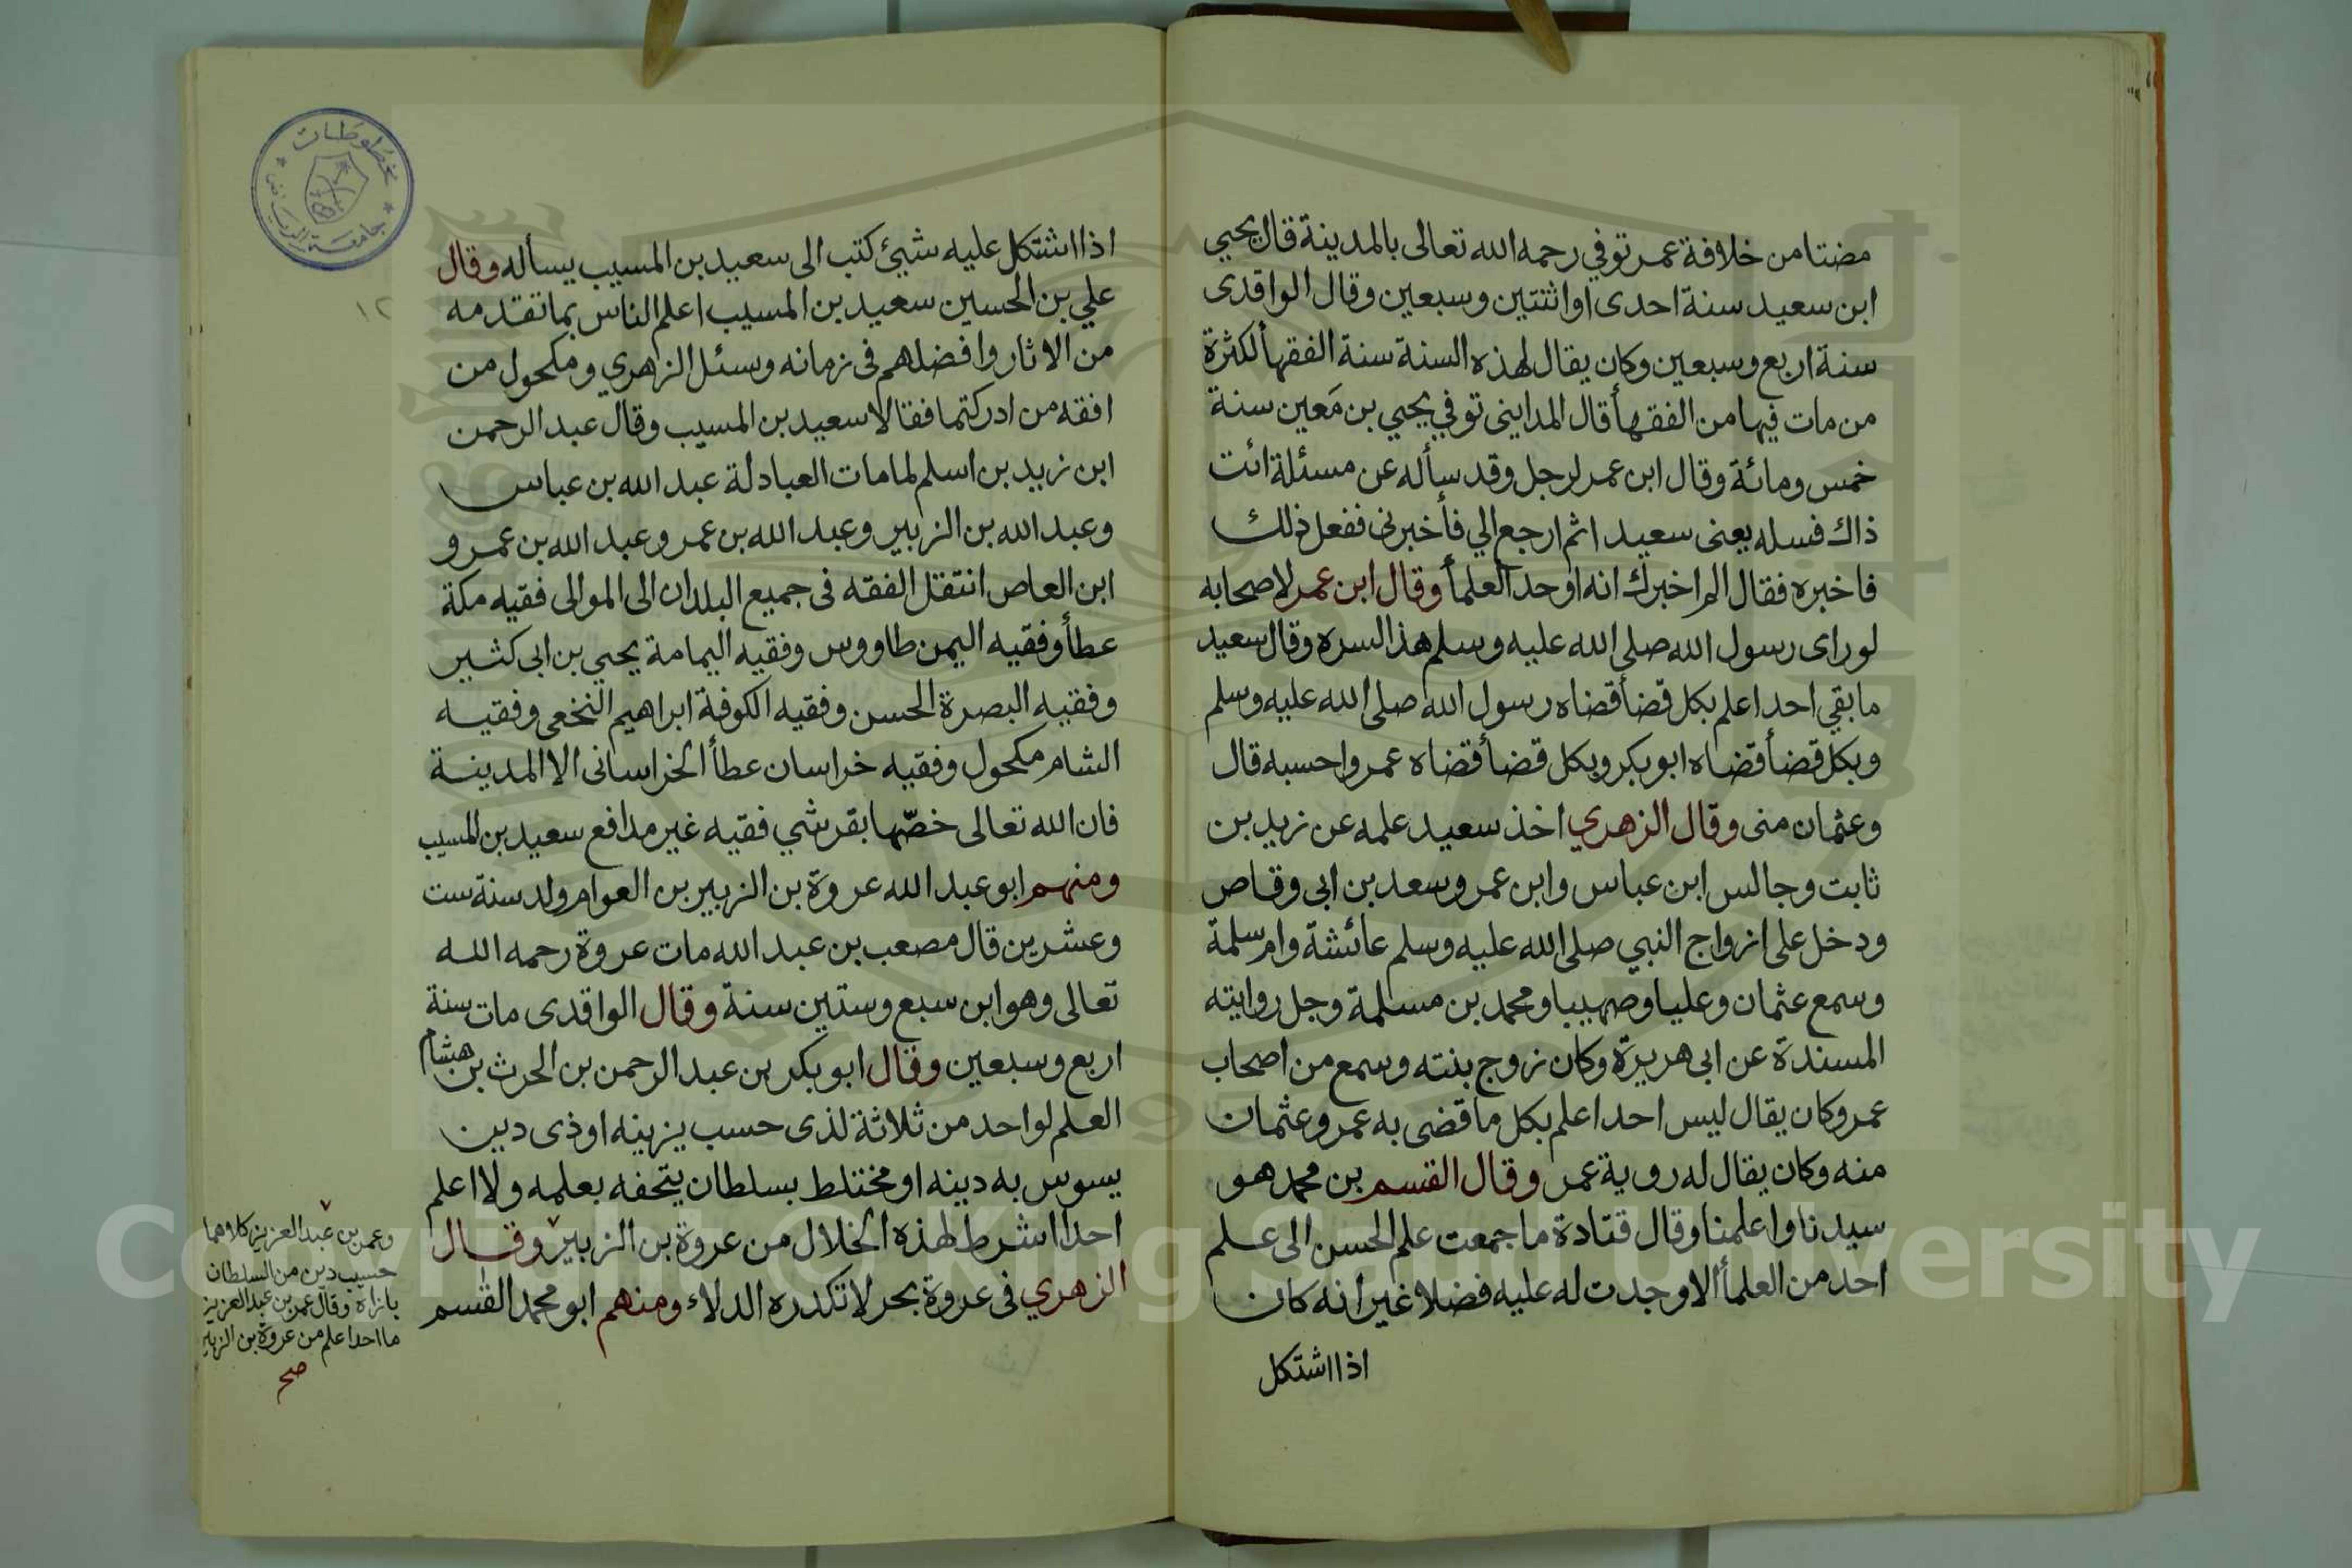 مضتا من خلافة عمر توفي رحمه الله تعالى بالمدينة قال يحيي
ابن سعيد سنة احدى او اثنتين وسبعين وقال الواقدى
سنة اربع وسبعين وكان يقال لهذه السنة سنة الفقهأ لكثرة
من مات فيها من الفقهأ قال المداينى توفي يحيي بن مَعين سنة
خمس ومائة وقال ابن عمر لرجل وقد سأله عن مسئلة ائت
ذاك فسله يعنى سعيد اثم ارجع الي فأخبرنى ففعل ذلك
فاخبره فقال الم اخبرك انه اوحد العلمأ وقال ابن عمر لاصحابه
لوراى رسول الله صلى الله عليه وسلم هذا لسره وقال سعيد
ما بقي احد اعلم بكل قضأ قضاه رسول الله صلى الله عليه وسلم
وبكل قضأ قضاه ابو بكر وبكل قضأ قضاه عمر واحسبه قال
وعثمان منى وقال الزهري اخذ سعيد علمه عن زيد بن
ثابت وجالس ابن عباس وابن عمر وسعد بن ابى وقاص
ودخل على ازواج النبي صلى الله عليه وسلم عائشة وام سلمة
وسمع عثمان وعليا وصهيبا ومحمد بن مسلمة وجل روايته
المسندة عن ابى هريرة وكان زوج بنته وسمع من اصحاب
عمر وكان يقال ليس احد اعلم بكل ما قضى به عمر وعثمان
منه وكان يقال له روية عمر وقال القسم بن محمد هو
سيدنا واعلمنا وقال قتادة ما جمعت علم الحسن الى علم
احد من العلمأ الا وجدت له عليه فضلا غير انه كان
اذا اشتكل
مخطوطات
جامعة الرياض
١٢
اذا اشتكل عليه شيئ كتب الى سعيد بن المسيب يسأله وقال
علي بن الحسين سعيد بن المسيب اعلم الناس بما تقدمه
من الاثار وافضلهم فى زمانه وسئل الزهري ومكحول من
افقه من ادركتما فقالا سعيد بن المسيب وقال عبد الرحمن
ابن زيد بن اسلم لما مات العبادلة عبد الله بن عباس
وعبد الله بن الزبير وعبد الله بن عمر وعبد الله بن عمرو
ابن العاص انتقل الفقه فى جميع البلدان الى الموالى فقيه مكة
عطأ وفقيه اليمن طاووس وفقيه اليمامة يحيي بن ابى كثير
وفقيه البصرة الحسن وفقيه الكوفة ابراهيم النخعى وفقيه
الشام مكحول وفقيه خراسان عطأ الخراسانى الا المدينة
فان الله تعالى خصّها بقرشي فقيه غير مدافع سعيد بن المسيب
ومنهم ابو عبد الله عروة بن الزبير بن العوام ولد سنة ست
وعشرين قال مصعب بن عبد الله مات عروة رحمه الله
تعالى وهو ابن سبع وستين سنة وقال الواقدى مات سنة
اربع وسبعين وقال ابو بكر بن عبد الرحمن بن الحرث بن هشام
العلم لواحد من ثلاثة لذى حسب يزينه او ذى دين
يسوس به دينه او مختلط بسلطان يتحفه بعلمه ولا اعلم
احدا اشرط لهذه الخلال من عروة بن الزبير وقال
الزهري فى عروة بحر لا تكدره الدلاء ومنهم ابو محمد القسم
وعمر بن عبد العزيز كلاهما
حسيب دين من السلطان
بازاه وقال عمر بن عبد العزيز
ما احد اعلم من عروة بن الزبير
صح
Copyright © King Saud University